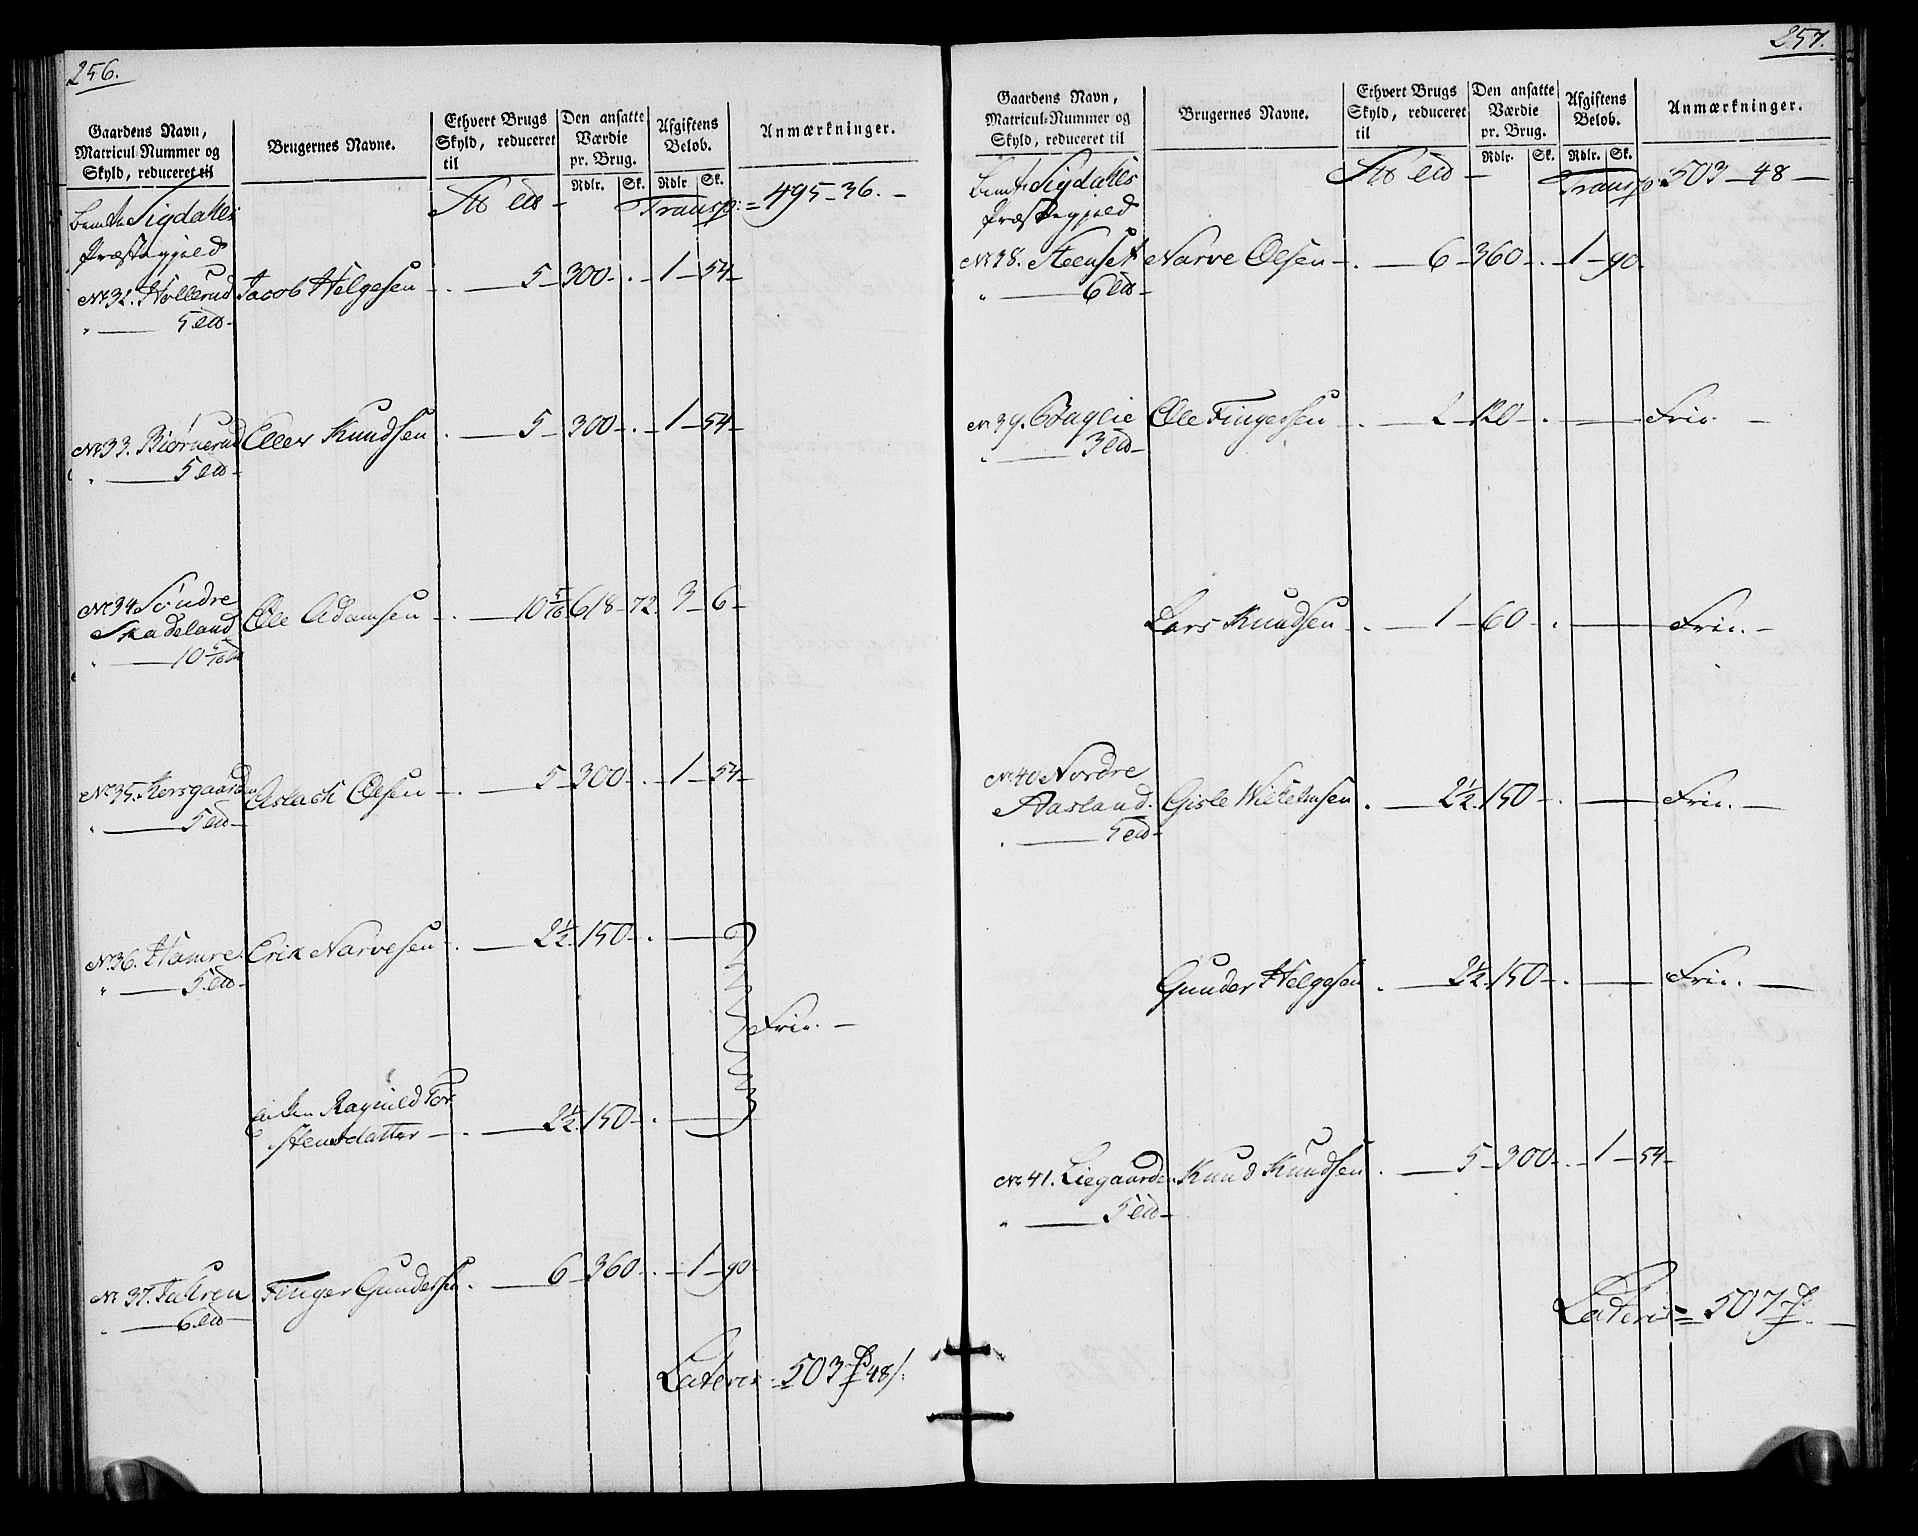 256.
Gaardens Navn,
Matricul Nummer og
Skyld, reduceret til
Brugernes Navne.
Ethvert Brugs
Skyld, reduceret
til
Den ansatte
Værdie
pr. Brug.
Rdlr. Sk.
Afgiftens
Belob.
Rdlr Sk.
Anmærkninger.
Transp: = 495-36.-
Sigdahls
Præstegjeld
No 32. Hollerud Jacob Helgesen - . — 5 - 300 - . - 1 - 54 -
" — 5
No 33. Biørnerud Eller Knudsen . — 5 - 300 - . - 1 - 54 -
" — 5
No 34 Søndre
Skadeland Ole Adamsen - . — 10 5/16 618 - 72. 3 - 6 -
" — 10 5/16
No 35. Kersgaarden Aslach Olsen - . — 5 - 300 - . - 1 - 54 -
" — 5
No 36. Hamre Erik Narvesen - . — 2 1/2 . 150 - . —
" — 5
Frie. -
Enken Ragnild Tor
stensdatter - . — 2 1/2 . 150 - . —
No 37. Finger Gundersen . — 6 - 360 - . - 1 - 90 -
" — 6
Lateris = 503 48
257.
Gaardens Navn,
Matricul-Nummer og
Skyld, reduceret til
Brugernes Navne.
Ethvert Brugs
Skyld, reduceret
til
Den ansatte
Værdie
pr. Brug.
Rdlr. Sk.
Afgiftens
Belob.
Rdlr. Sk.
Anmærkninger.
Transp: 503 - 48 -
Sigdahls
Præstegjeld
No 38. Steenset Narve Olsen - . — 6 - 360 - . - 1 - 90.
" — 6
No 39. Ole Fingersen - . — 2 - 120 - . — Frie -
" — 3
Lars Knudsen - . — 1 - 60 - . — Frie. -
No 40 Nordre
Aasland. Gisle Wilhelmsen . — 2 1/2 . 150 - . — Frie. -
" — 5
Gunder Helgesen . — 2 1/2 . 150 - . — Frie. -
No 41. Liegaarden Knud Knudsen . — 5 - 300 - . - 1 - 54 -
" — 5
Lateris = 507